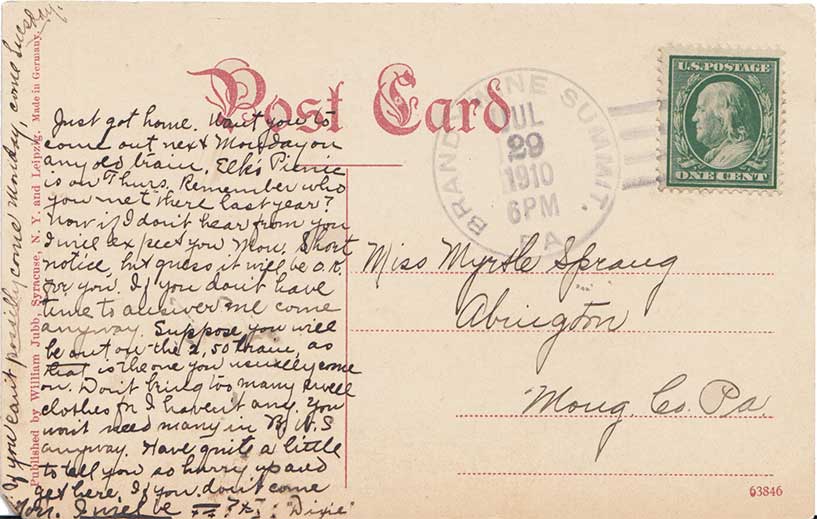 Post Card
BRANDYWINE SUMMIT
JUL
29
1910
6PM
PA
U.S. POSTAGE
ONE CENT
Just got home. Want you to
come out next Monday on
any old train. Elk's Picnic
is on Thurs. Remember who
you met there last year?
Now if I don't hear from you
I will expect you Mon. Short
notice, but guess it will be O.K.
for you. If you don't have
time to answer me come
anyway. Suppose you will
be out on the 2,50 train, as
that is the one you usually come
on. Don't bring too many swell
clothes for I haven't any. You
won't need many in B.W.S
anyway. Have quite a little
to tell you so hurry up and
get here. If you don't come
Mon. I will be ?: "Dixie"
If you can't possibly come Monday, come Tuesday.
Published by William Jubb, Syracuse, N. Y. and Leipzig. Made in Germany.
Miss Myrtle Sprang
Abington
Mong. Co. Pa.
63846